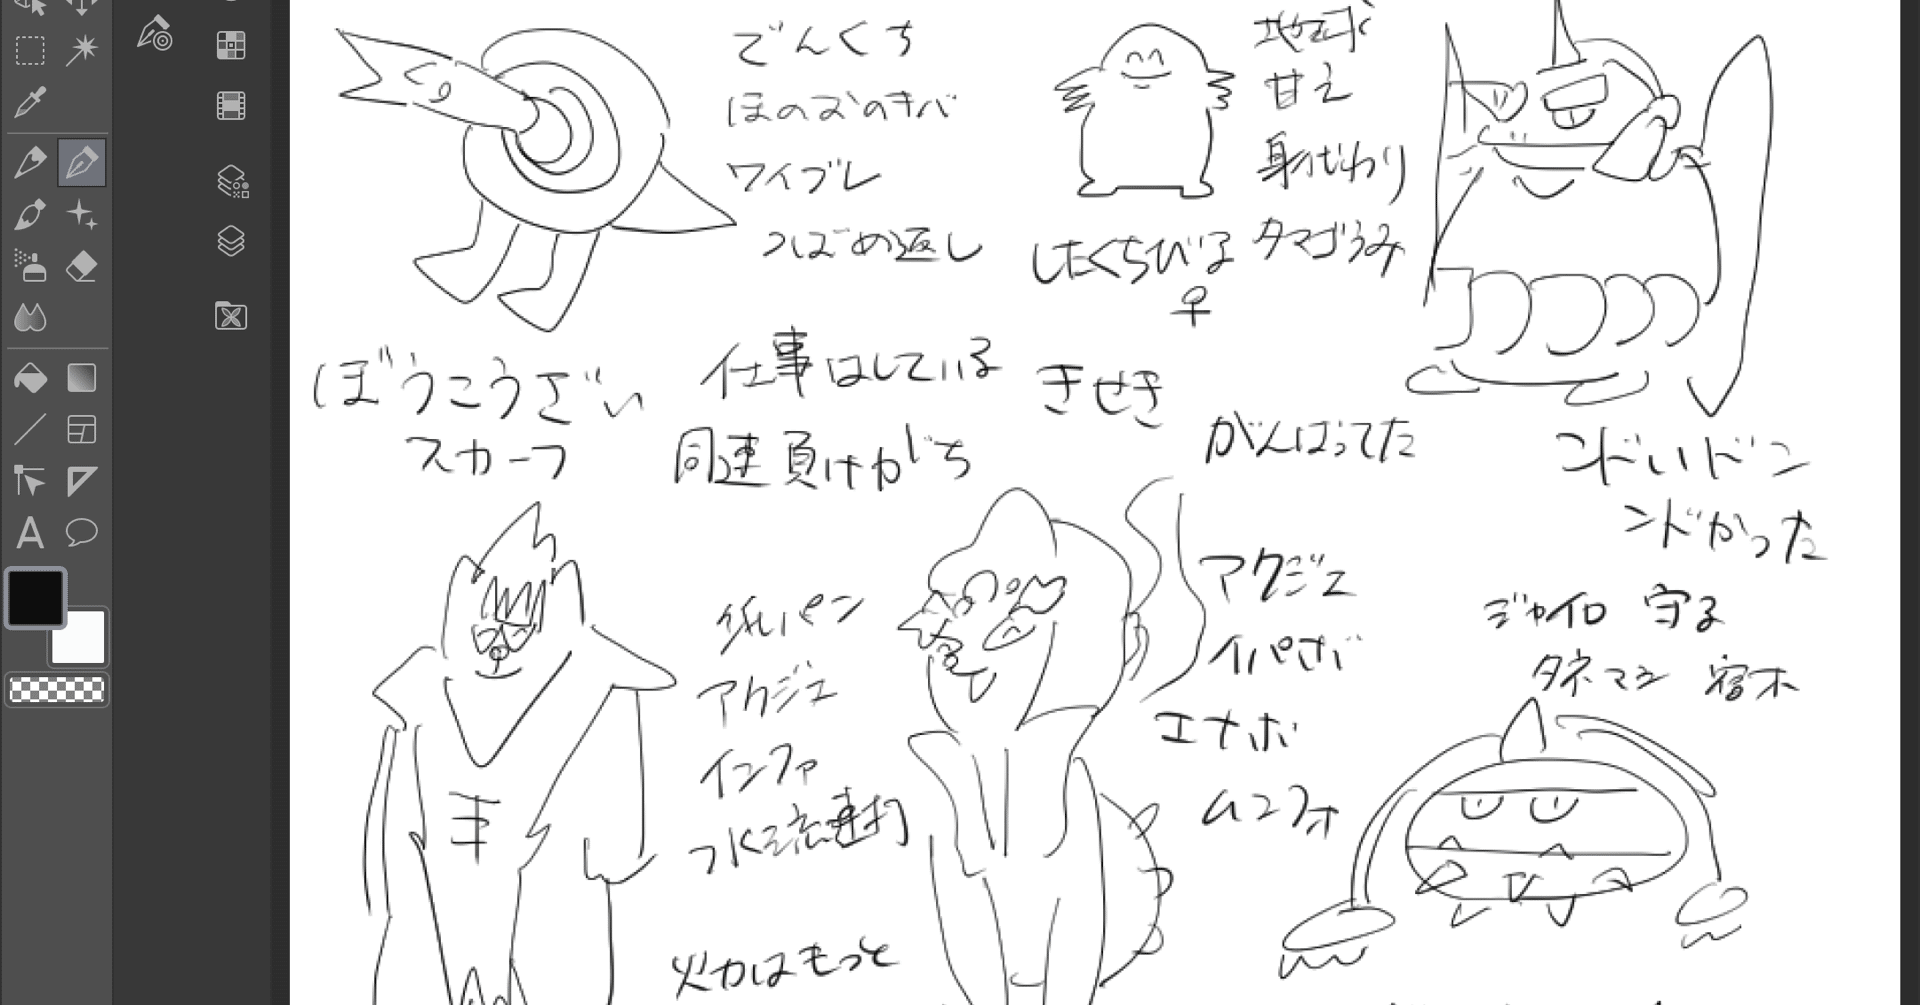 でんくち
ほのおのキバ
ワイブレ
つばめ返し
地球
甘え
身代わり
タマゴうみ
したくちびる
♀
ぼうこうざい
スカーフ
仕事はしている
同速負けがち
きせき
がんばってた
ンドいドン
ンドかった
低いパン
アクジェ
インファ
水流連打
火力はもっと
アクジェ
イバさぼ
エナボ
ムンフォ
ジャイロ 守る
タネマシ 宿木
A